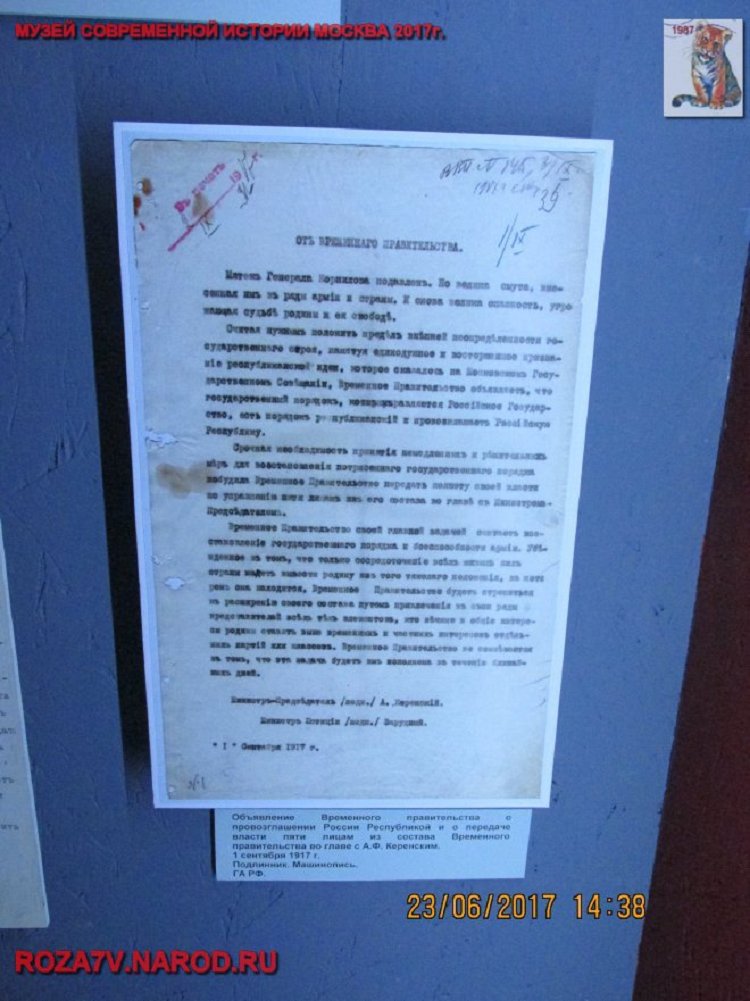 МУЗЕЙ СОВРЕМЕННОЙ ИСТОРИИ МОСКВА 2017г.
1987
Въ печать
39
1/IX
ОТЪ ВРЕМЕННАГО ПРАВИТЕЛЬСТВА.
Мятежъ Генерала Корнилова подавленъ. Но велика смута, вне-
сенная имъ въ ряды арміи и страны. И снова велика опасность, угро-
жающая судьбѣ родины и ея свободѣ.
Считая нужнымъ положить предѣлъ внѣшней неопредѣленности го-
сударственнаго строя, памятуя единодушное и восторженное признa-
ніе республиканской идеи, которое сказалось на Московскомъ Госу-
дарственномъ Совѣщаніи, Временное Правительство объявляетъ, что
государственный порядокъ, которымъ управляется Россійское Государ-
ство, есть порядокъ республиканскій и провозглашаетъ Россійскую
Республику.
Срочная необходимость принятія немедленныхъ и рѣшительныхъ
мѣръ для возстановленія потрясеннаго государственнаго порядка
побудила Временное Правительство передать полноту своей власти
по управленію пяти лицамъ изъ его состава во главѣ съ Министромъ-
Предсѣдателемъ.
Временное Правительство своей главной задачей считаетъ воз-
становленіе государственнаго порядка и боеспособности арміи. Убѣ-
жденное въ томъ, что только сосредоточеніе всѣхъ живыхъ силъ
страны можетъ вывести родину изъ того тяжелаго положенія, въ кото
ромъ она находится, Временное Правительство будетъ стремиться
къ расширенію своего состава путемъ привлеченія въ свои ряды
представителей всѣхъ тѣхъ элементовъ, кто вѣчные и общіе интере-
сы родины ставитъ выше временныхъ и частныхъ интересовъ отдѣль-
ныхъ партій или классовъ. Временное Правительство не сомнѣвается
въ томъ, что эта задача будетъ имъ исполнена въ теченіе ближай-
шихъ дней.
Министръ-Предсѣдатель /подп./ А. Керенскій.
Министръ Юстиціи /подп./ Зарудный.
" 1 " Сентября 1917 г.
Объявление Временного правительства о
провозглашении России Республикой и о передаче
власти пяти лицам из состава Временного
правительства во главе с А.Ф. Керенским.
1 сентября 1917 г.
Подлинник. Машинопись.
ГА РФ.
23/06/2017 14:38
ROZA7V.NAROD.RU